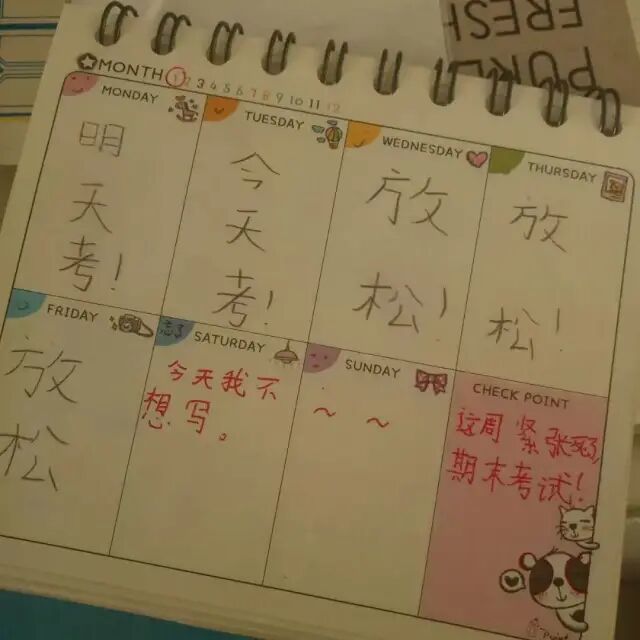 PURE
FRESH
MONTH 1 2 3 4 5 6 7 8 9 10 11 12
MONDAY
明
天
考！
TUESDAY
今
天
考！
WEDNESDAY
放
松！
THURSDAY
放
松！
FRIDAY
放
松
忘了
SATURDAY
今天我不
想写。
SUNDAY
~ ~
CHECK POINT
这周紧张死了，
期末考试！